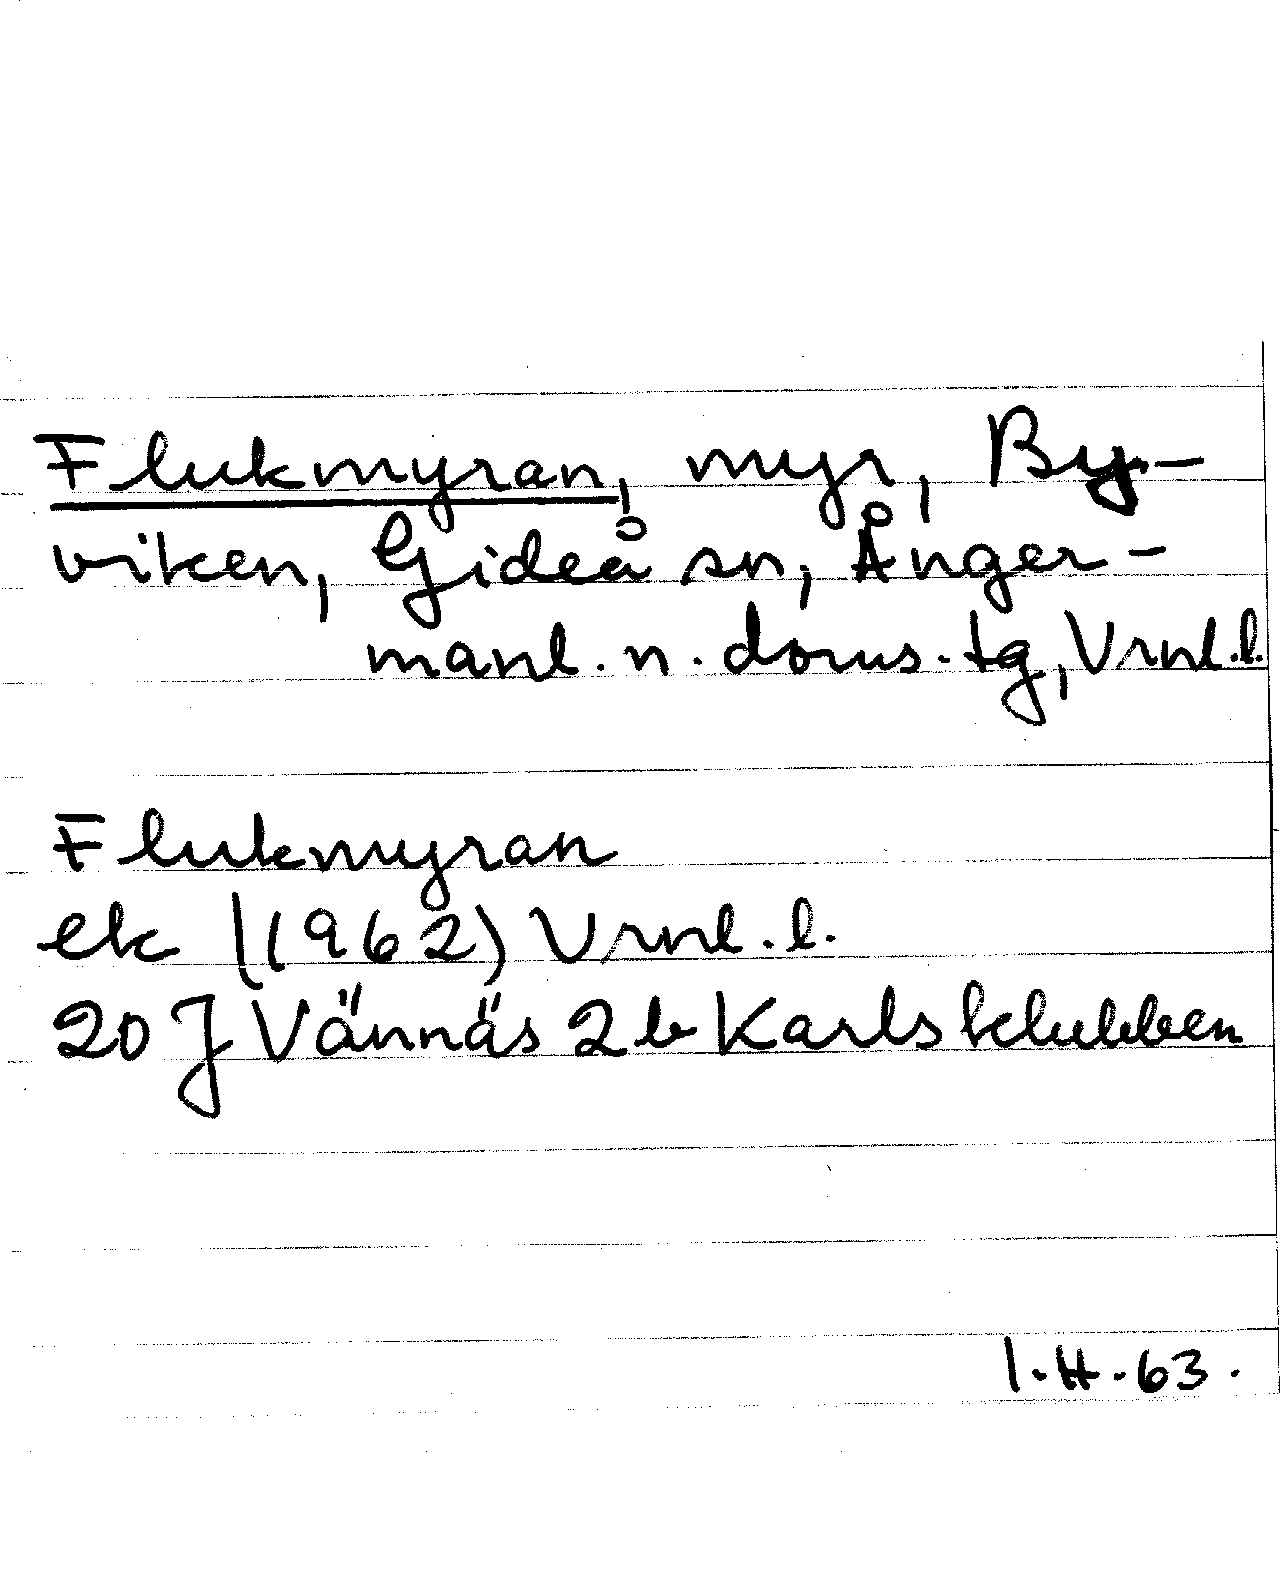 Flukmyran, myr, By-
viken, Gideå sn, Ånger-
manl. n. doms. tg, Vrnl. l.
Flukmyran
ek (1962) Vrnl. l.
20 J Vännäs 2b Karlsklubben
I. H. 63.